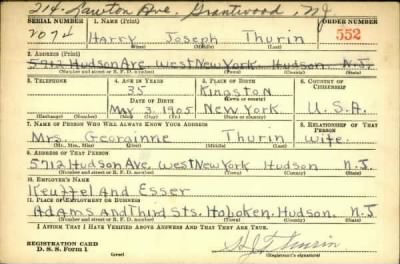 214 Lawton Ave. Grantwood, NJ
SERIAL NUMBER 1. NAME (Print) ORDER NUMBER
2074 Harry Joseph Thurin 552
(First) (Middle) (Last)
2. ADDRESS (Print)
5712 Hudson Ave. West New York. Hudson. N.J.
(Number and street or R. F. D. number) (Town) (County) (State)
3. TELEPHONE 4. AGE IN YEARS 5. PLACE OF BIRTH 6. COUNTRY OF CITIZENSHIP
35 Kingston
(Town or county)
DATE OF BIRTH
May 3, 1905 New York. U.S.A.
(Exchange) (Number) (Mo.) (Day) (Yr.) (State or country)
7. NAME OF PERSON WHO WILL ALWAYS KNOW YOUR ADDRESS 8. RELATIONSHIP OF THAT PERSON
Mrs. Georginne Thurin Wife.
(Mr., Mrs., Miss) (First) (Middle) (Last)
9. ADDRESS OF THAT PERSON
5712 Hudson Ave. West New York Hudson N.J.
(Number and street or R. F. D. number) (Town) (County) (State)
10. EMPLOYER'S NAME
Keuffel and Esser
11. PLACE OF EMPLOYMENT OR BUSINESS
Adams and Third Sts. Hoboken. Hudson. N.J.
(Number and street or R. F. D. number) (Town) (County) (State)
I AFFIRM THAT I HAVE VERIFIED ABOVE ANSWERS AND THAT THEY ARE TRUE.
REGISTRATION CARD
D. S. S. Form 1 (over) H J Thurin
(Registrant's signature)